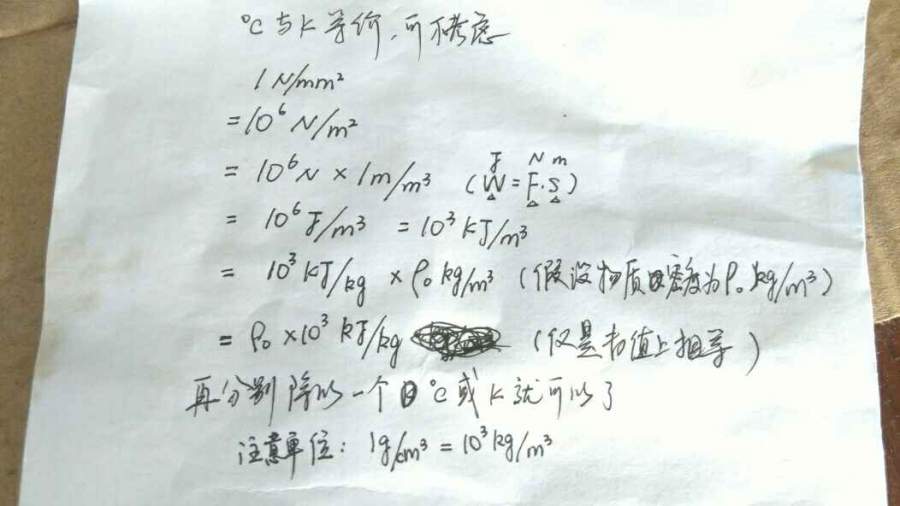 ℃与K等价,可不考虑
1 N/mm²
=10⁶ N/m²
= 10⁶N × 1m/m³ (W=F·S) J N m
= 10⁶ J/m³ = 10³ KJ/m³
= 10³ KJ/kg × ρ₀ kg/m³ (假设物质密度为ρ₀ kg/m³)
= ρ₀ ×10³ kJ/kg (仅是书值上相等)
再分别除以一个℃或K就可以了
注意单位: 1g/cm³ = 10³ kg/m³